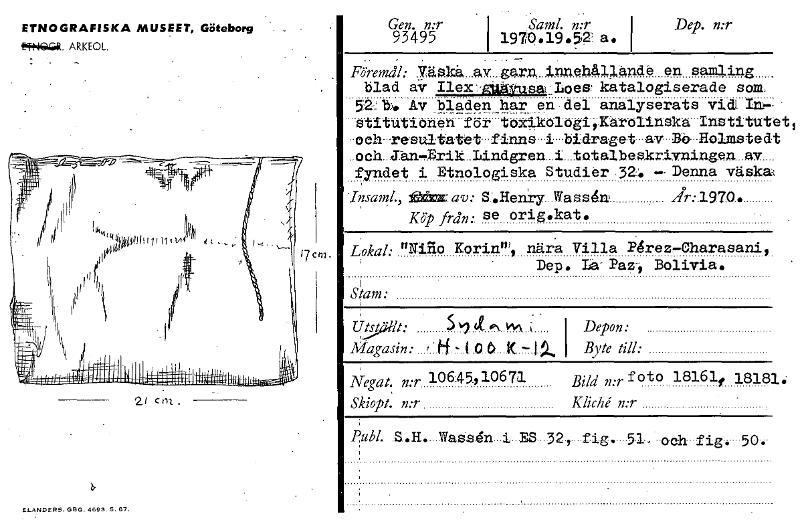 ETNOGRAFISKA MUSEET, Göteborg
ETNOGR. ARKEOL.
17 cm.
21 cm.
ELANDERS. GBG. 4693. S. 67.
Gen. n:r Saml. n:r Dep. n:r
93495 1970.19.52 a.
Föremål: Väska av garn innehållande en samling
blad av Ilex guayusa Loes katalogiserade som
52 b. Av bladen har en del analyserats vid In-
stitutionen för toxikologi, Karolinska Institutet,
och resultatet finns i bidraget av Bo Holmstedt
och Jan-Erik Lindgren i totalbeskrivningen av
fyndet i Etnologiska Studier 32. - Denna väska
Insaml., av: S.Henry Wassén År: 1970.
Köp från: se orig.kat.
Lokal: "Niño Korin", nära Villa Pérez-Charasani,
Dep. La Paz, Bolivia.
Stam:
Utställt: Sydam. Depon:
Magasin: H-100 K-12 Byte till:
Negat. n:r 10645,10671 Bild n:r foto 18161, 18181.
Skiopt. n:r Kliché n:r
Publ. S.H. Wassén i ES 32, fig. 51. och fig. 50.